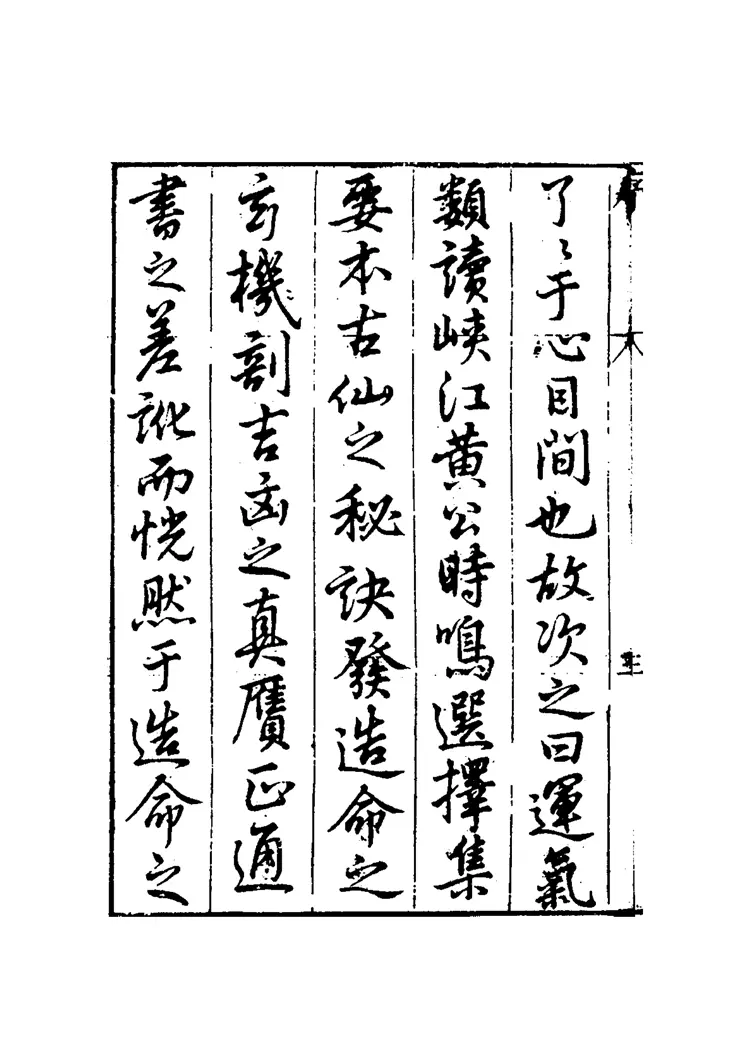 了〻于心目間也故次之曰運氣
類讀峽江黃公時鳴選擇集
要本古仙之秘訣發造命之
玄機剖吉凶之真贋正通
書之差訛而恍然于造命之